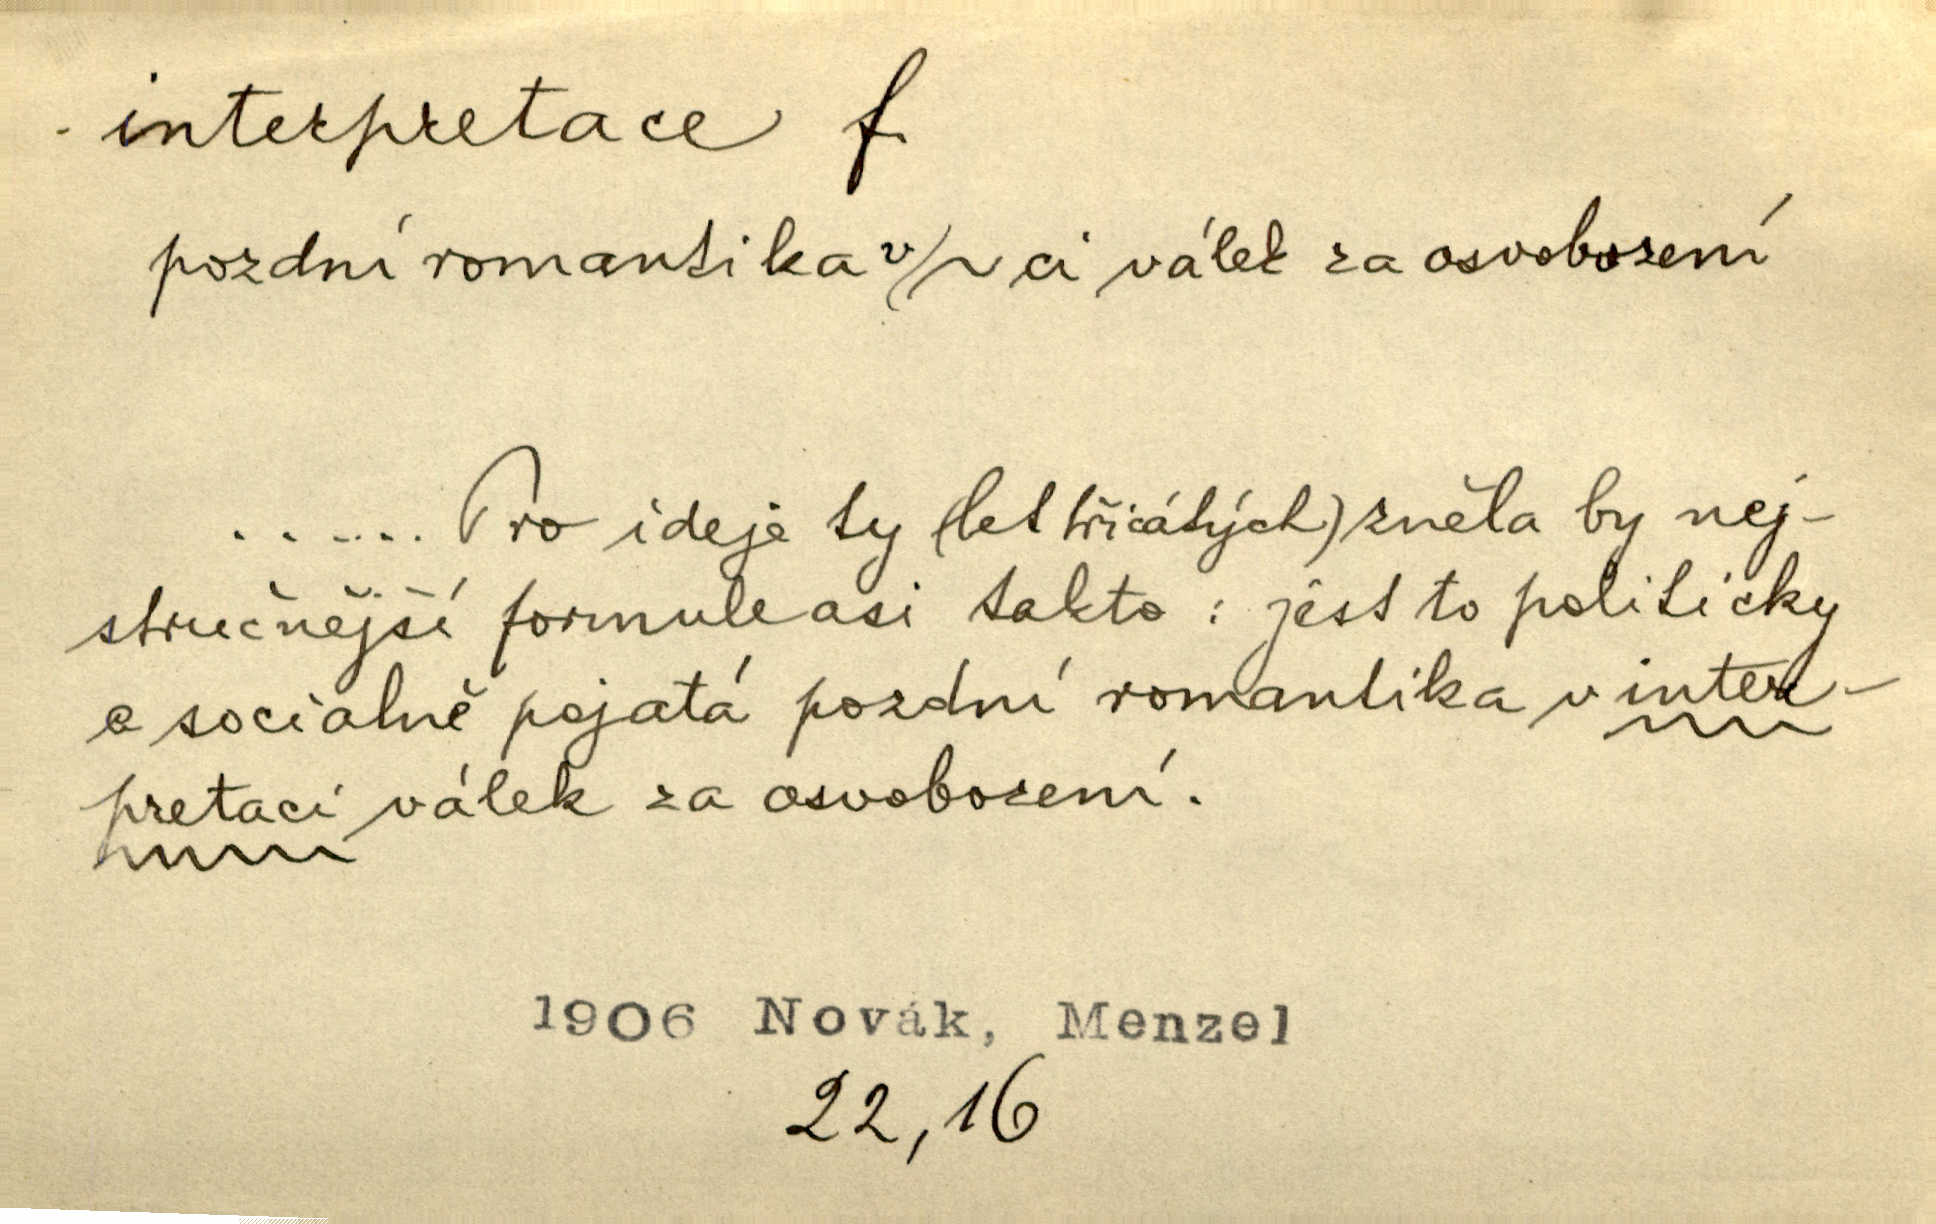 interpretace f.
pozdní romantika v ~ci válek za osvobození
...... Pro ideje ty (let třicátých) zněla by nej-
stručnější formule asi takto : jest to politicky
a socialně pojatá pozdní romantika v inter-
pretaci válek za osvobození.
1906 Novák, Menzel
22,16